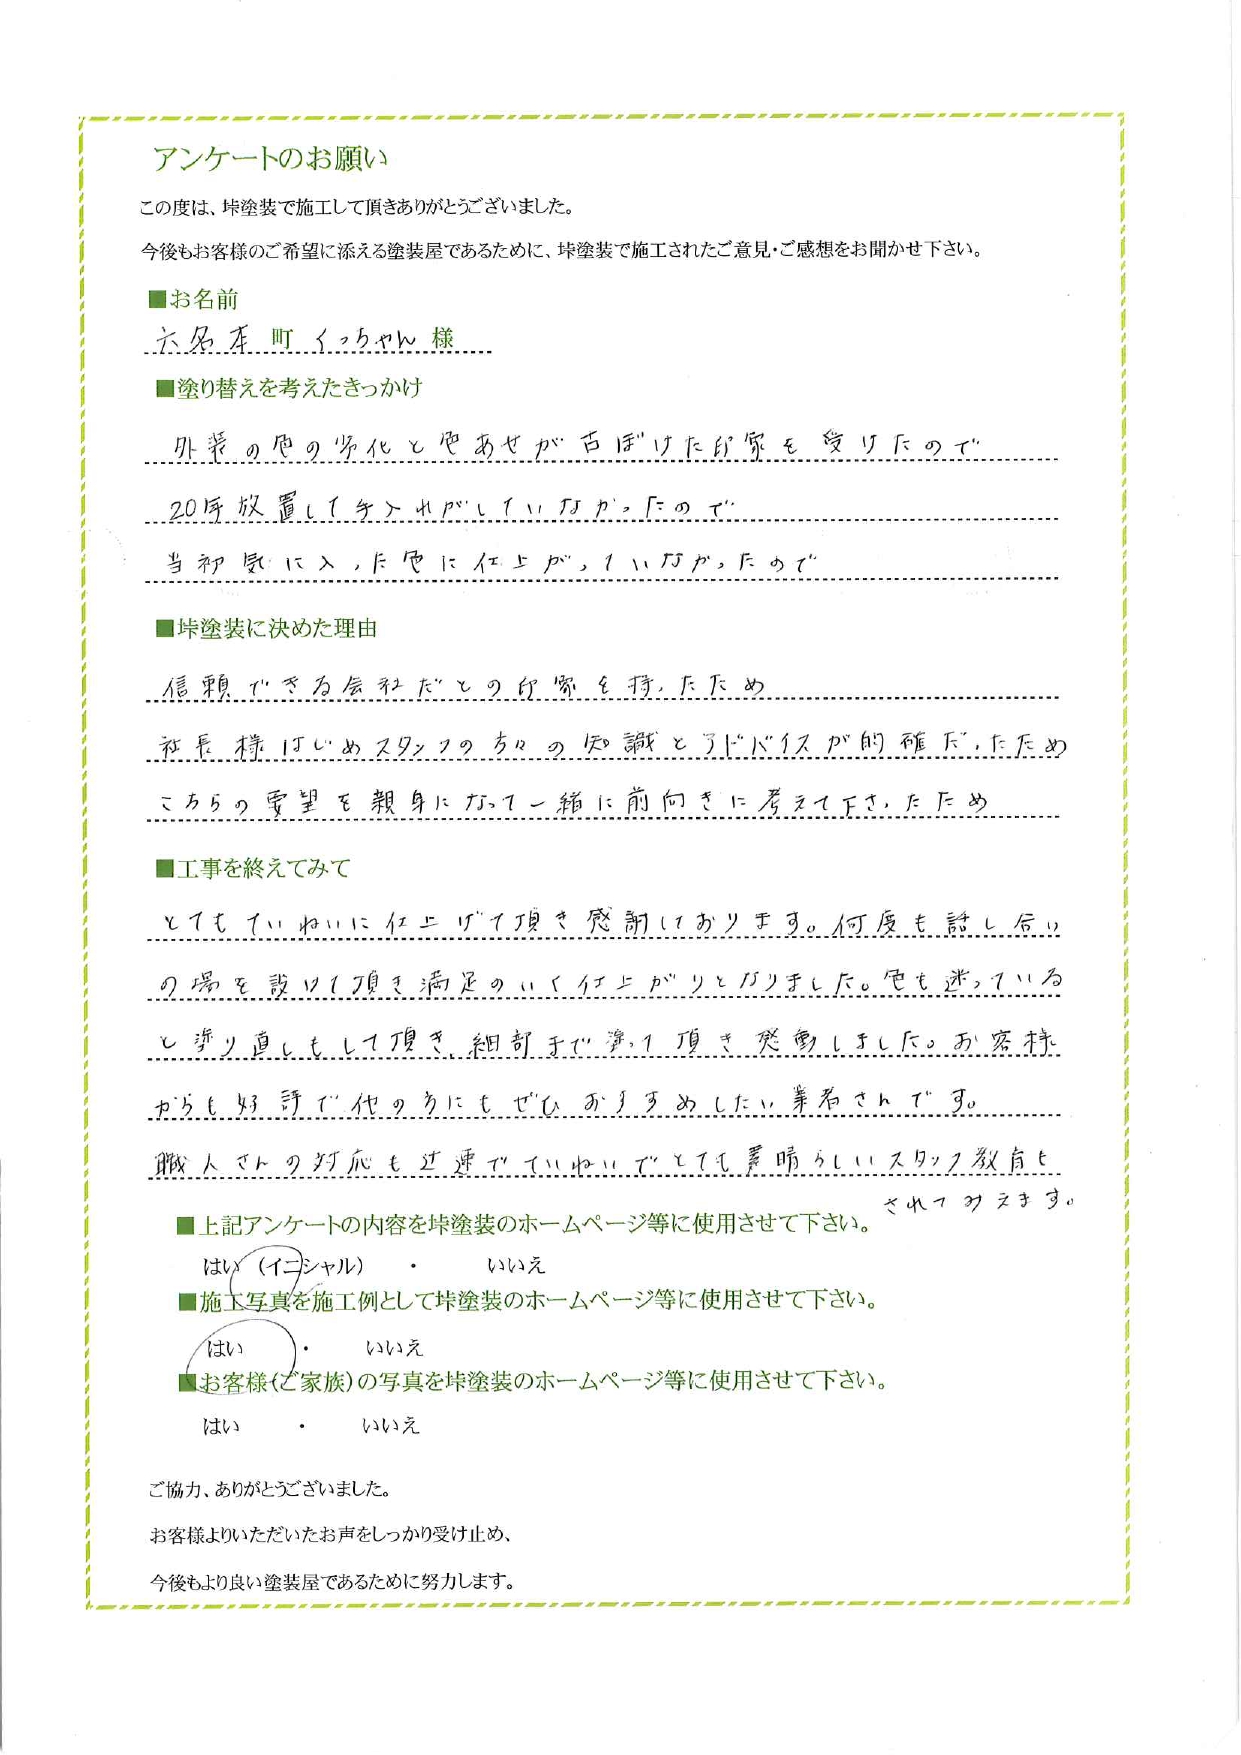 アンケートのお願い
この度は、垰塗装で施工して頂きありがとうございました。
今後もお客様のご希望に添える塗装屋であるために、垰塗装で施工されたご意見・ご感想をお聞かせ下さい。
■お名前
六名本 町 くっちゃん 様
■塗り替えを考えたきっかけ
外装の色の劣化と色あせが古ぼけた印象を受けたので
20年放置して手入れがしていなかったので
当初気に入った色に仕上がっていなかったので
■垰塗装に決めた理由
信頼できる会社だとの印象を持ったため
社長様はじめスタッフの方々の知識とアドバイスが的確だったため
こちらの要望を親身になって一緒に前向きに考えて下さったため
■工事を終えてみて
とてもていねいに仕上げて頂き感謝しております。何度も話し合い
の場を設けて頂き満足のいく仕上がりとなりました。色も迷っている
と塗り直しもして頂き、細部まで塗って頂き感動しました。お客様
からも好評で他の方にもぜひおすすめしたい業者さんです。
職人さんの対応も迅速でていねいでとても素晴らしいスタッフ教育も
されてみえます。
■上記アンケートの内容を垰塗装のホームページ等に使用させて下さい。
はい（イニシャル） ・ いいえ
■施工写真を施工例として垰塗装のホームページ等に使用させて下さい。
はい ・ いいえ
■お客様（ご家族）の写真を垰塗装のホームページ等に使用させて下さい。
はい ・ いいえ
ご協力、ありがとうございました。
お客様よりいただいたお声をしっかり受け止め、
今後もより良い塗装屋であるために努力します。